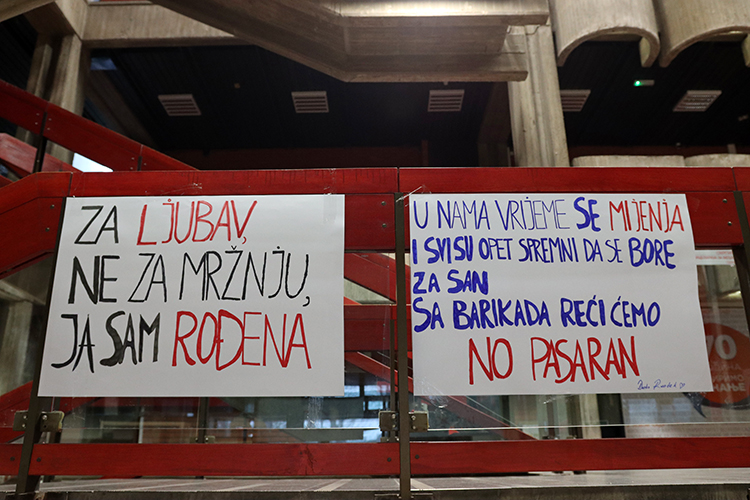 ZA LJUBAV,
NE ZA MRŽNJU,
JA SAM ROĐENA
U NAMA VRIJEME SE MIJENJA
I SVI SU OPET SPREMNI DA SE BORE
ZA SAN
SA BARIKADA REĆI ĆEMO
NO PASARAN
70